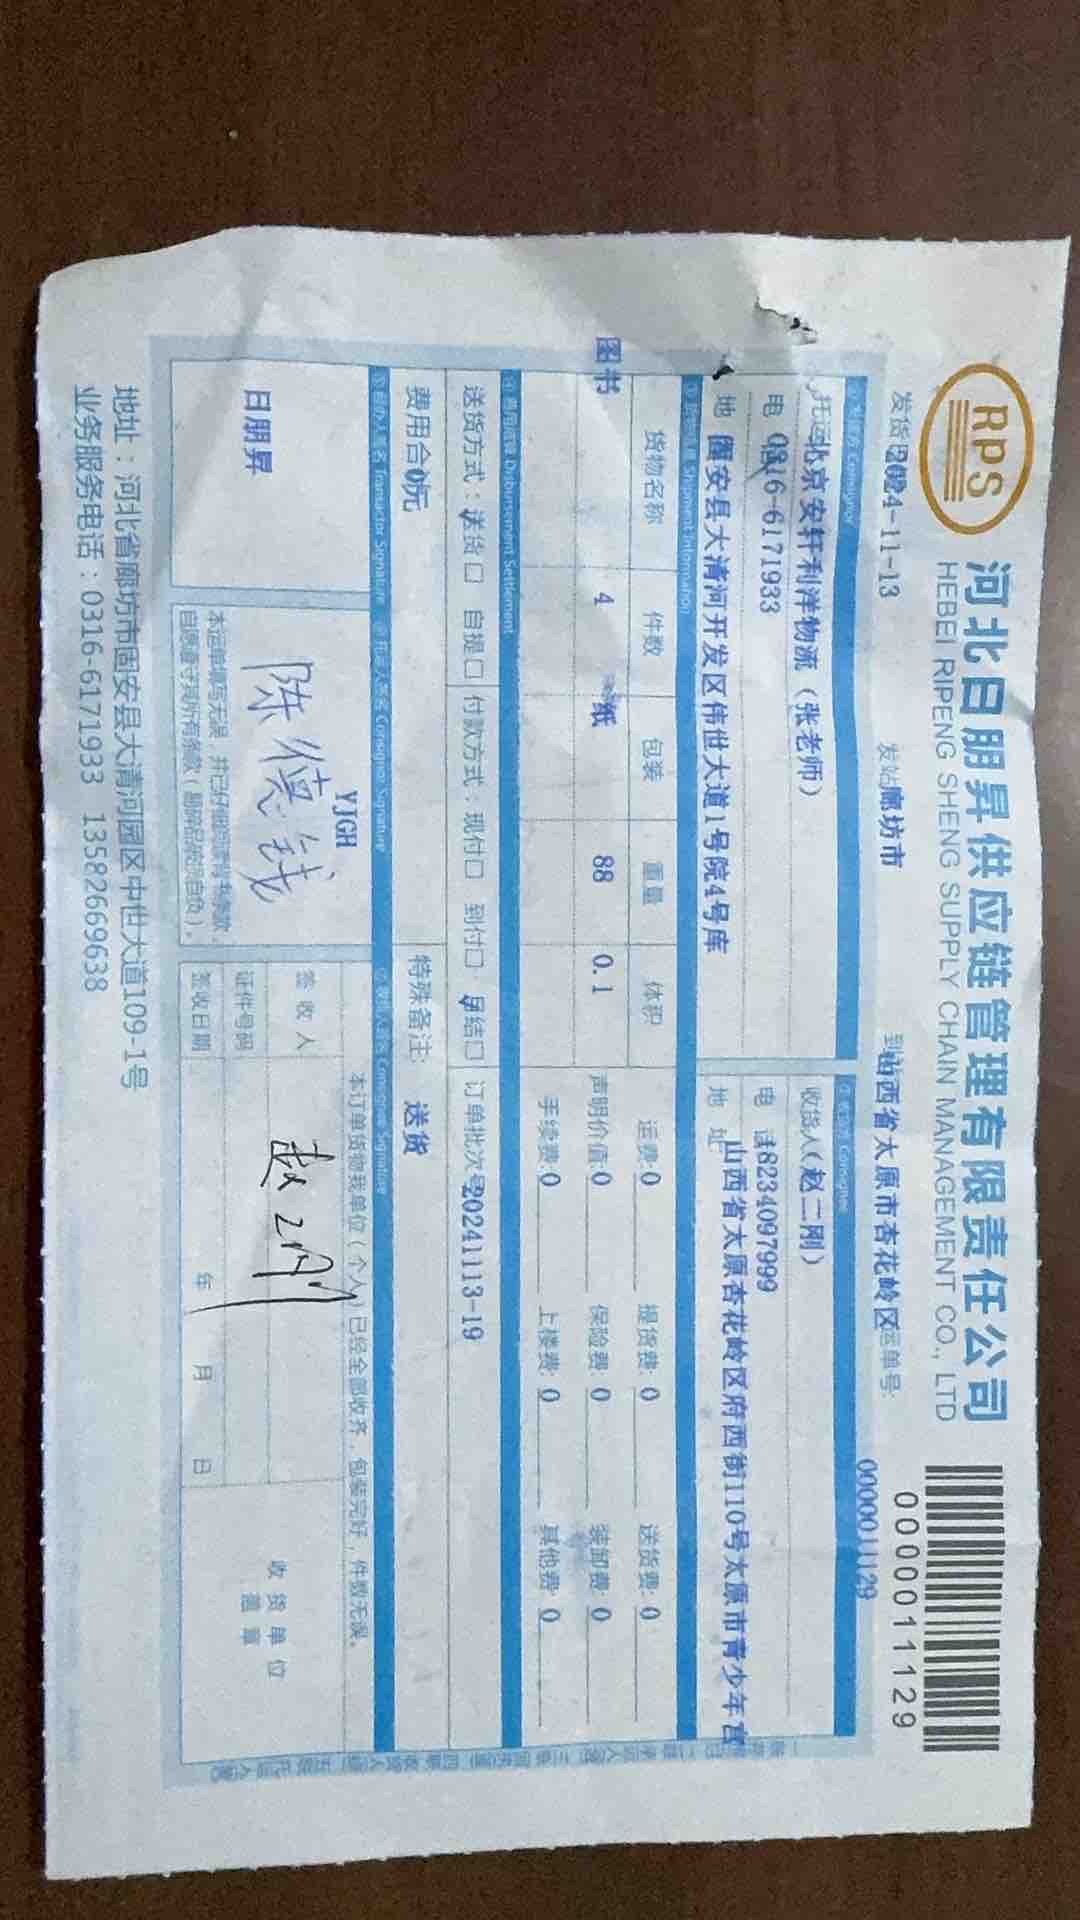 RPS
河北日朋昇供应链管理有限责任公司
HEBEI RIPENG SHENG SUPPLY CHAIN MANAGEMENT CO., LTD
0000011129
发货日2024-11-13 发站廊坊市 到站山西省太原市杏花岭区 运单号: 0000011129
Consignor
Consignee
托运北京安轩利洋物流（张老师）
收货人(赵二刚)
电 0316-6171933
电 话8234097999
地 固安县大清河开发区伟世大道1号院4号库
地 址山西省太原杏花岭区府西街110号太原市青少年宫
③货物信息 Shipment Information
货物名称 件数 包装 重量 体积 运费:0 提货费:0 送货费:0
图书 4 纸 88 0.1 声明价值:0 保险费:0 装卸费:0
手续费:0 上楼费:0 其他费:0
④费用结算 Disbursement Settlement
送货方式：送货口 自提口 付款方式：现付口 到付口 月结口 订单批次号20241113-19
费用合0元 特殊备注: 送货
⑤经办人签名 Transactor Signature Consignor Signature Consignee Signature
日朋昇
YJGH
陈德钱
本订单货物我单位(个人)已经全部收齐，包装完好，件数无误。
签收人 赵二刚
证件号码
签收日期 年 月 日
收货单位
盖章
地址：河北省廊坊市固安县大青河园区中世大道109-1号
业务服务电话：0316-6171933 13582669638